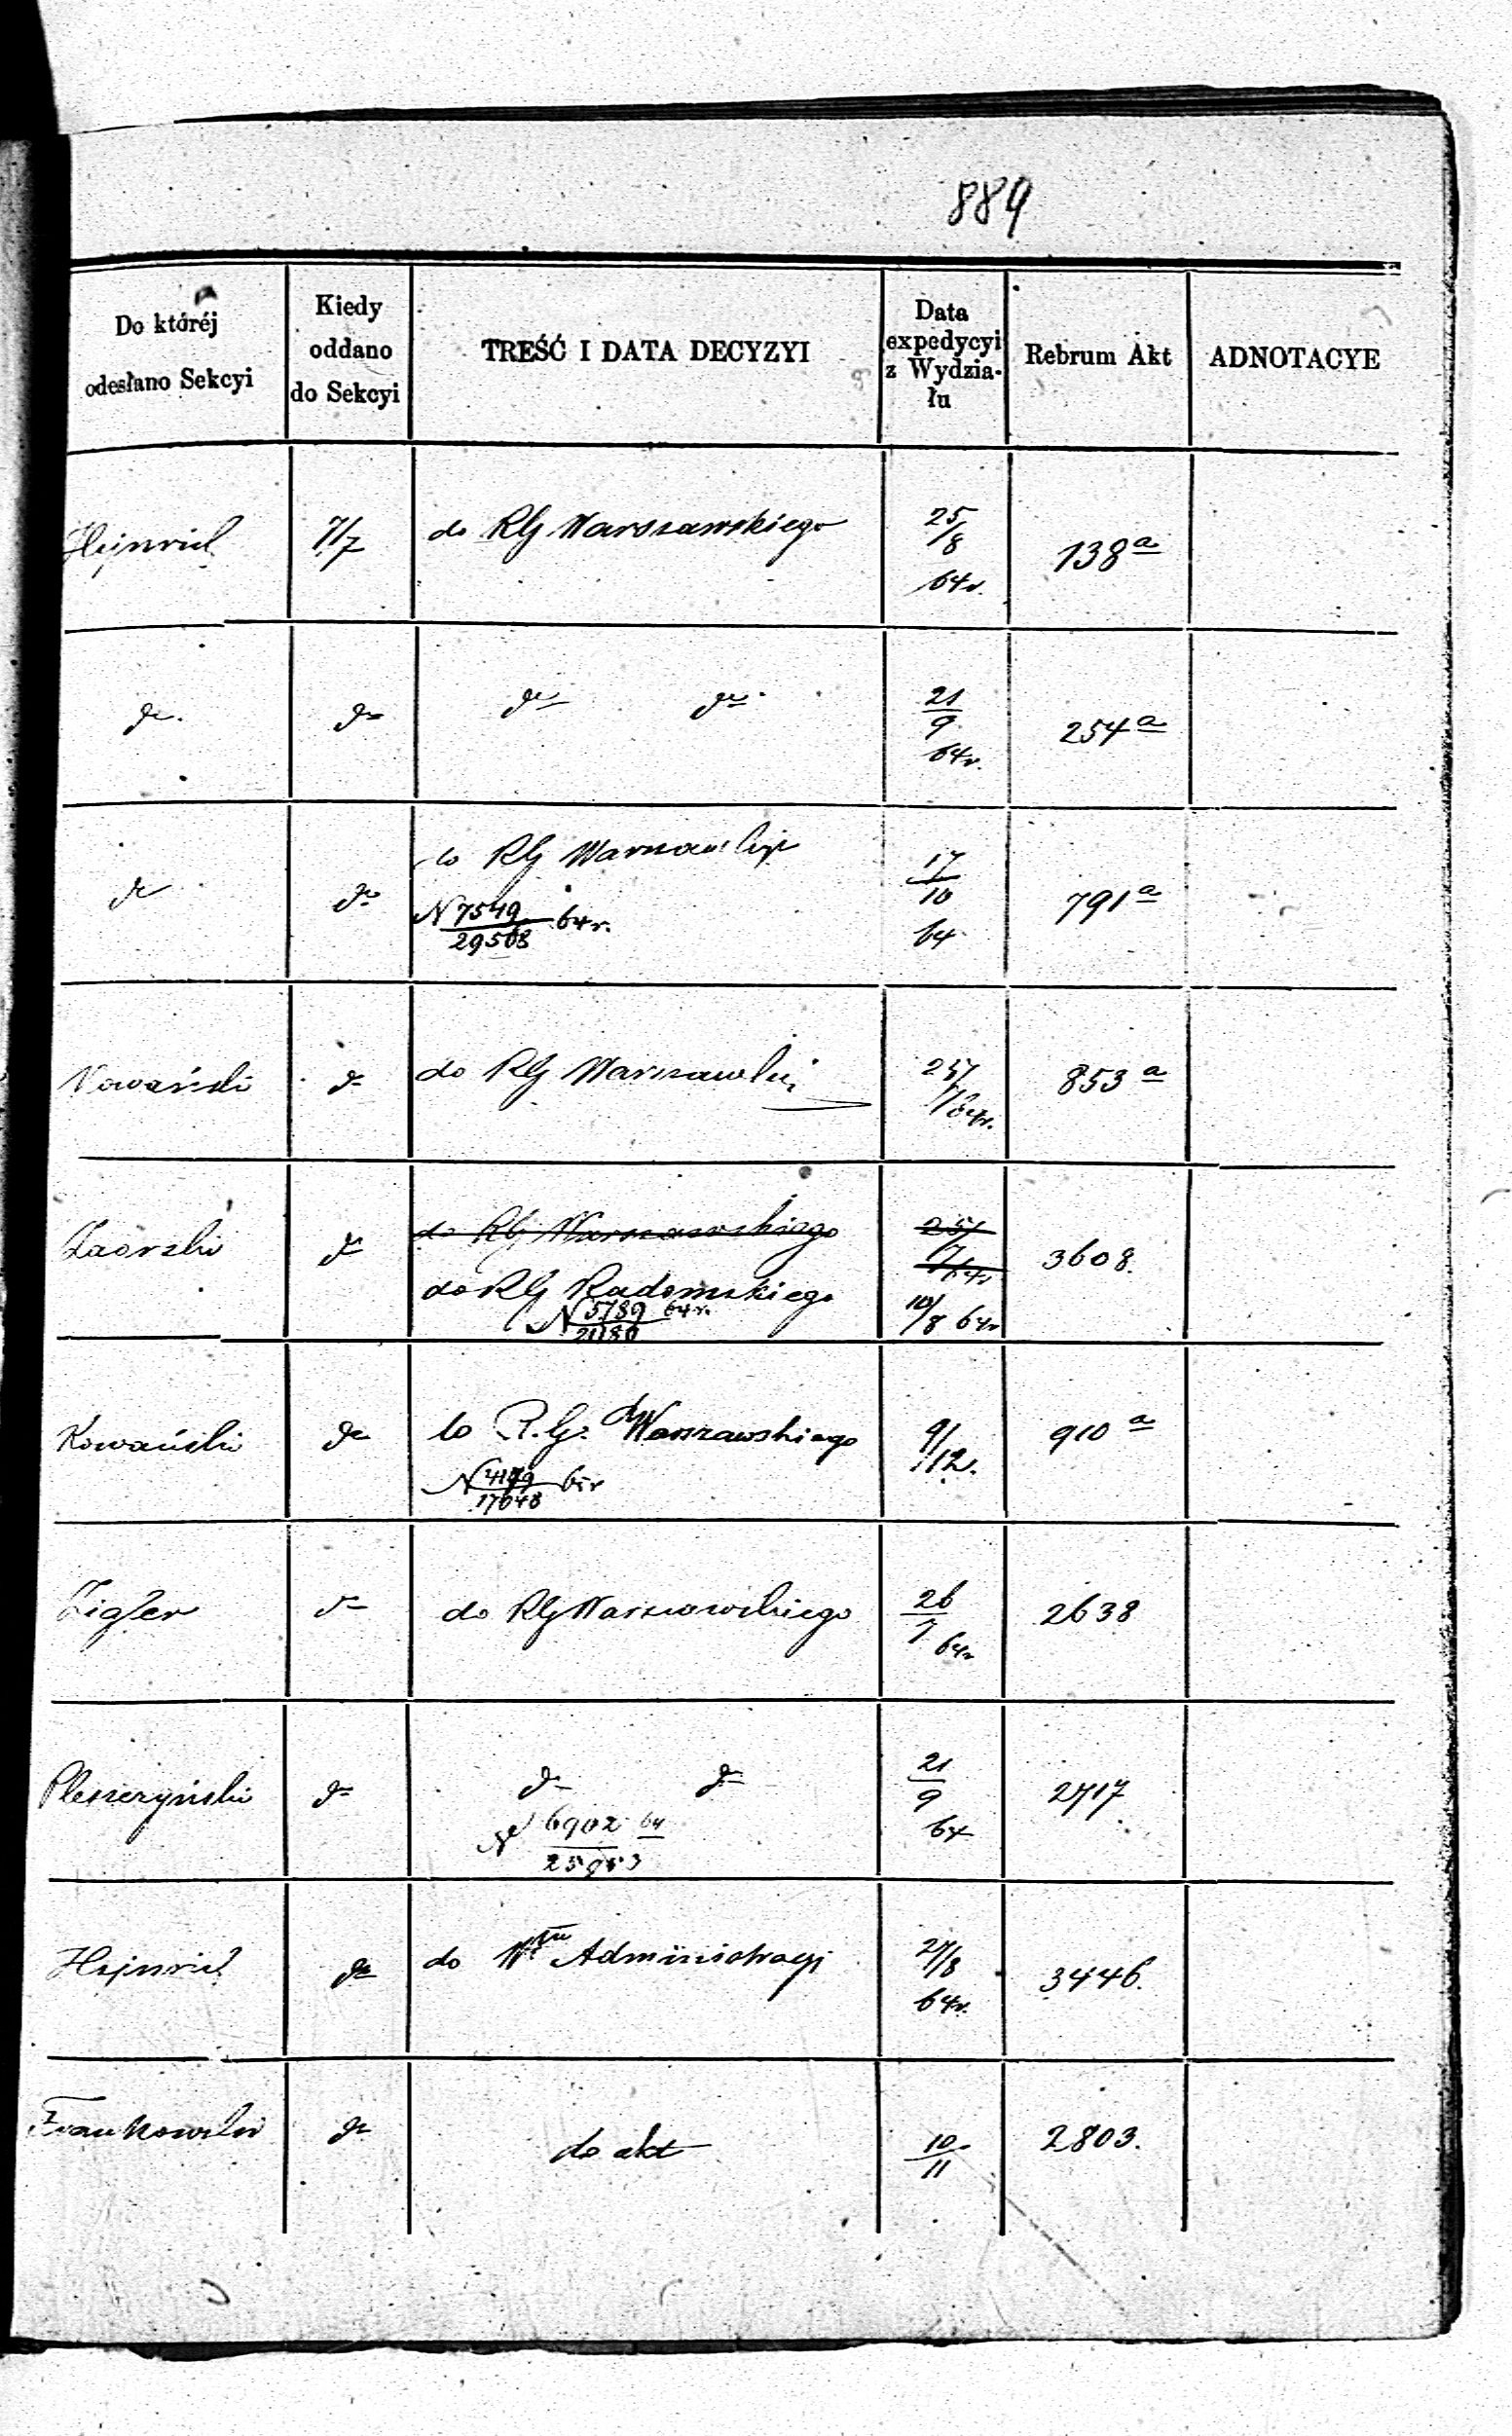 889
Do któréj
odesłano Sekcyi
Kiedy
oddano
do Sekcyi
TREŚĆ I DATA DECYZYI
Data
expedycyi
z Wydzia-
łu
Rebrum Akt
ADNOTACYE
Hejnrich
7/7
do RG Warszawskiego
25/8
64 r.
138 a
do
do
do do
21/9
64 r.
254 a
do
do
do RG Warszawskiego
N 7549/29508 64 r.
17/10
64
791 a
Kowański
do
do RG Warszawski
25/7 64 r.
853 a
Zaorski
do
do RG Warszawskiego
do RG Radomskiego
N 5789/21180 64 r.
25/7 64 r
10/8 64 r
3608.
Kowański
do
do R. G. Warszawskiego
9/12.
910 a
Zigler
do
do RG Warszawskiego
26/7 64 r
2638
Pleszczyński
do
do do
N 6902 64
21/9
64
2717
Hejnrich
do
do Włu Administracyj
27/8
64 r.
3446.
Frankowski
do
do akt
10/11
2803.